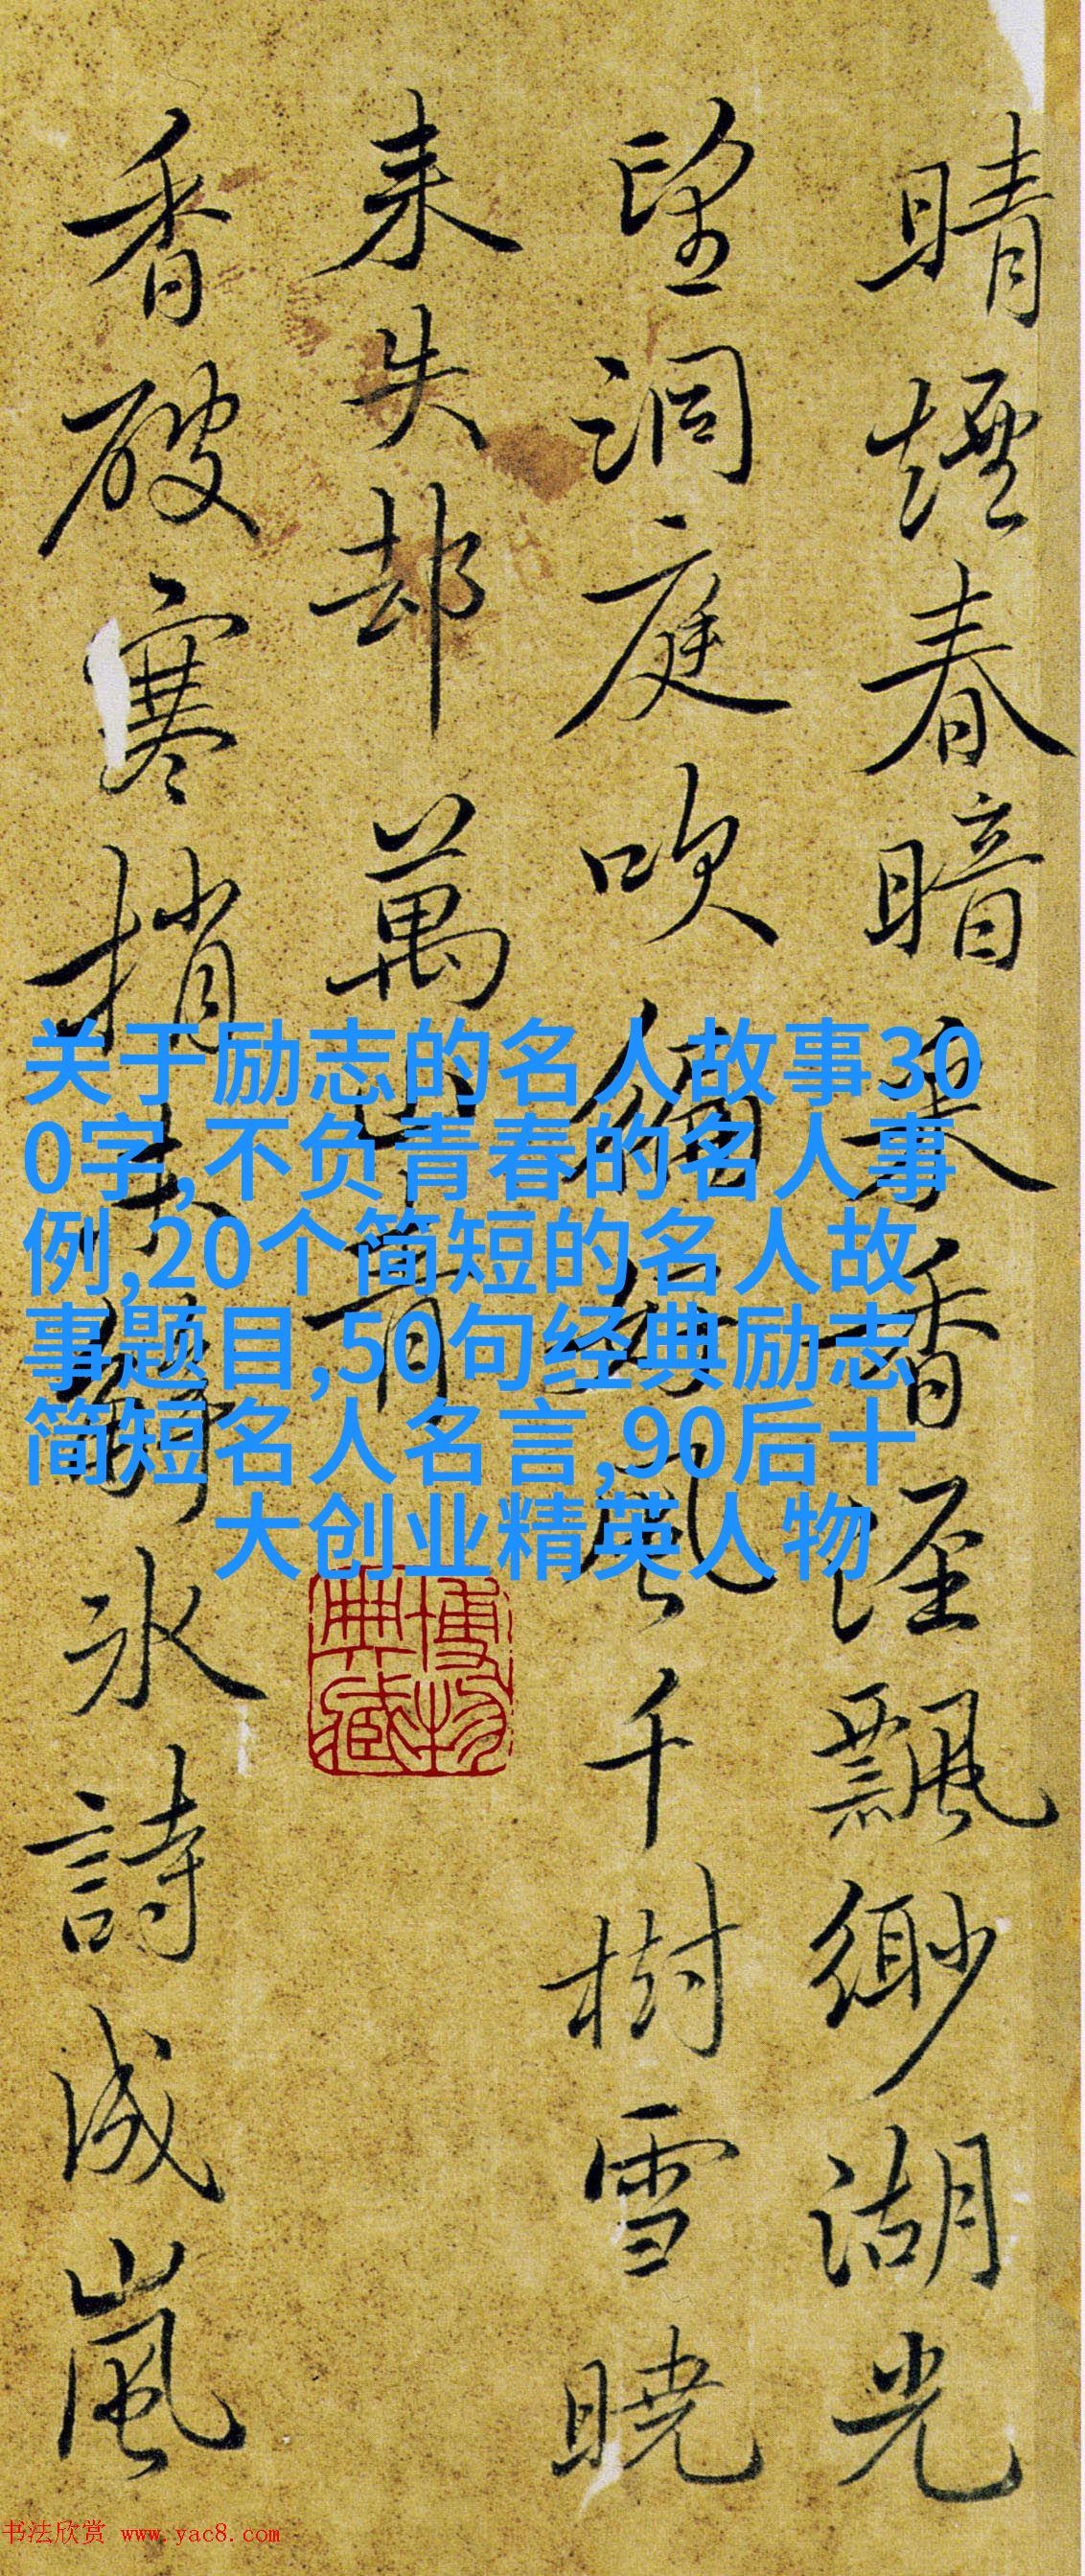 晴煙春暗香飄緲湖光
望洞庭吹徧梅風千樹雪曉
来失却萬山青
香破寒梢冰詩成嵐
关于励志的名人故事30
0字,不负青春的名人事
例,20个简短的名人故
事题目,50句经典励志
简短名人名言,90后十
大创业精英人物
博物
典藏
书法欣赏 www.yac8.com